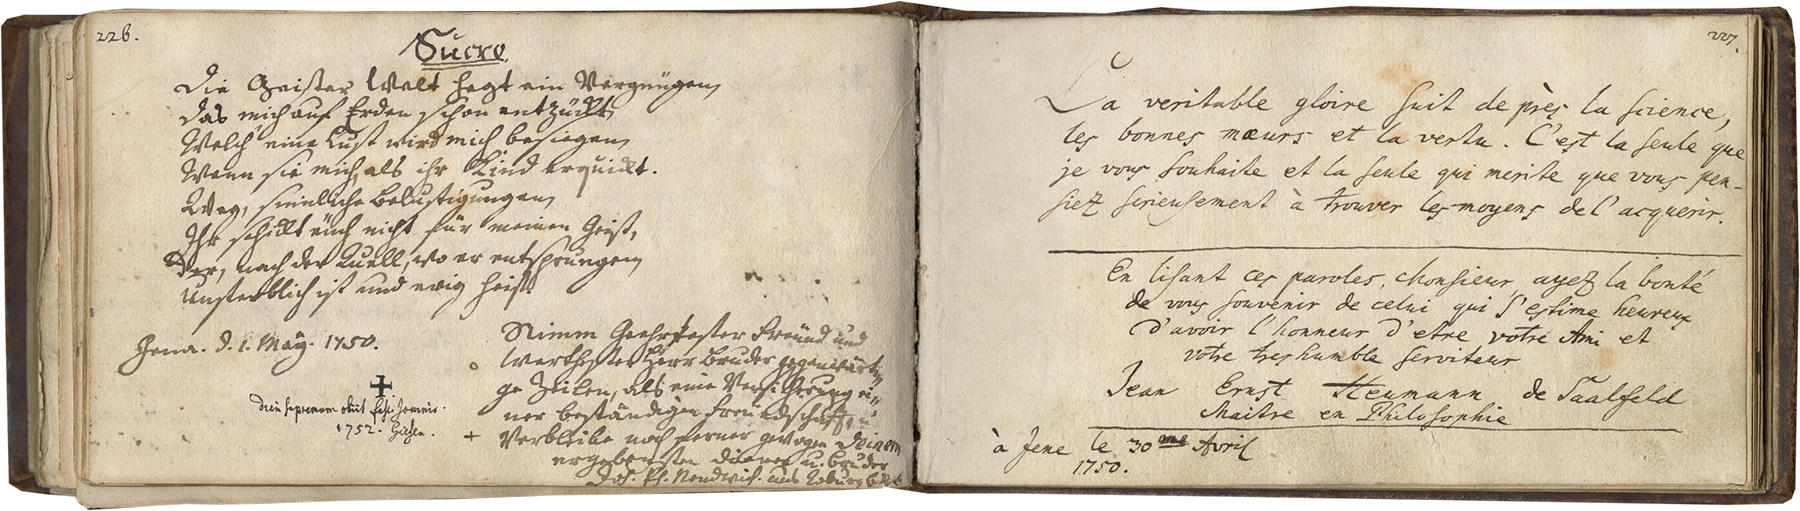 226.
Sucro.
Die Geister Welt hegt ein Vergnügen,
Das mich auf Erden schon entzückt,
Welch' eine Lust wird mich besiegen,
Wenn sie mich, als ihr Kind erquickt.
Weg, sinnliche Belustigungen,
Ihr schickt euch nicht für meinen Geist,
Der, nach der Quell, wo er entsprungen,
Unsterblich ist und ewig heist.
Jena. d. 1. May. 1750.
Nimm Geehrtester Freund und
Werthester Herr Bruder gegenwärti-
ge Zeilen, als eine Versicherung ei-
ner beständigen Freundschafft, u.
Verbleibe noch ferner gewogen Deinem
ergebensten Diener u. Bruder
Joh. Ph. aus Coburg
+
obiit
1752.
+
227.
La veritable gloire suit de près la science,
les bonnes mœurs et la vertu. C'est la seule que
je vous souhaite et la seule qui merite que vous pen-
siez serieusement à trouver les moyens de l'acquerir.
En lisant ces paroles, Monsieur, ayez la bonté
de vous souvenir de celui qui s'estime heureux
d'avoir l'honneur d'etre votre Ami et
votre tres humble serviteur
Jean Ernst Heumann de Saalfeld
Maitre en Philosophie
à Jene le 30me Avril
1750.